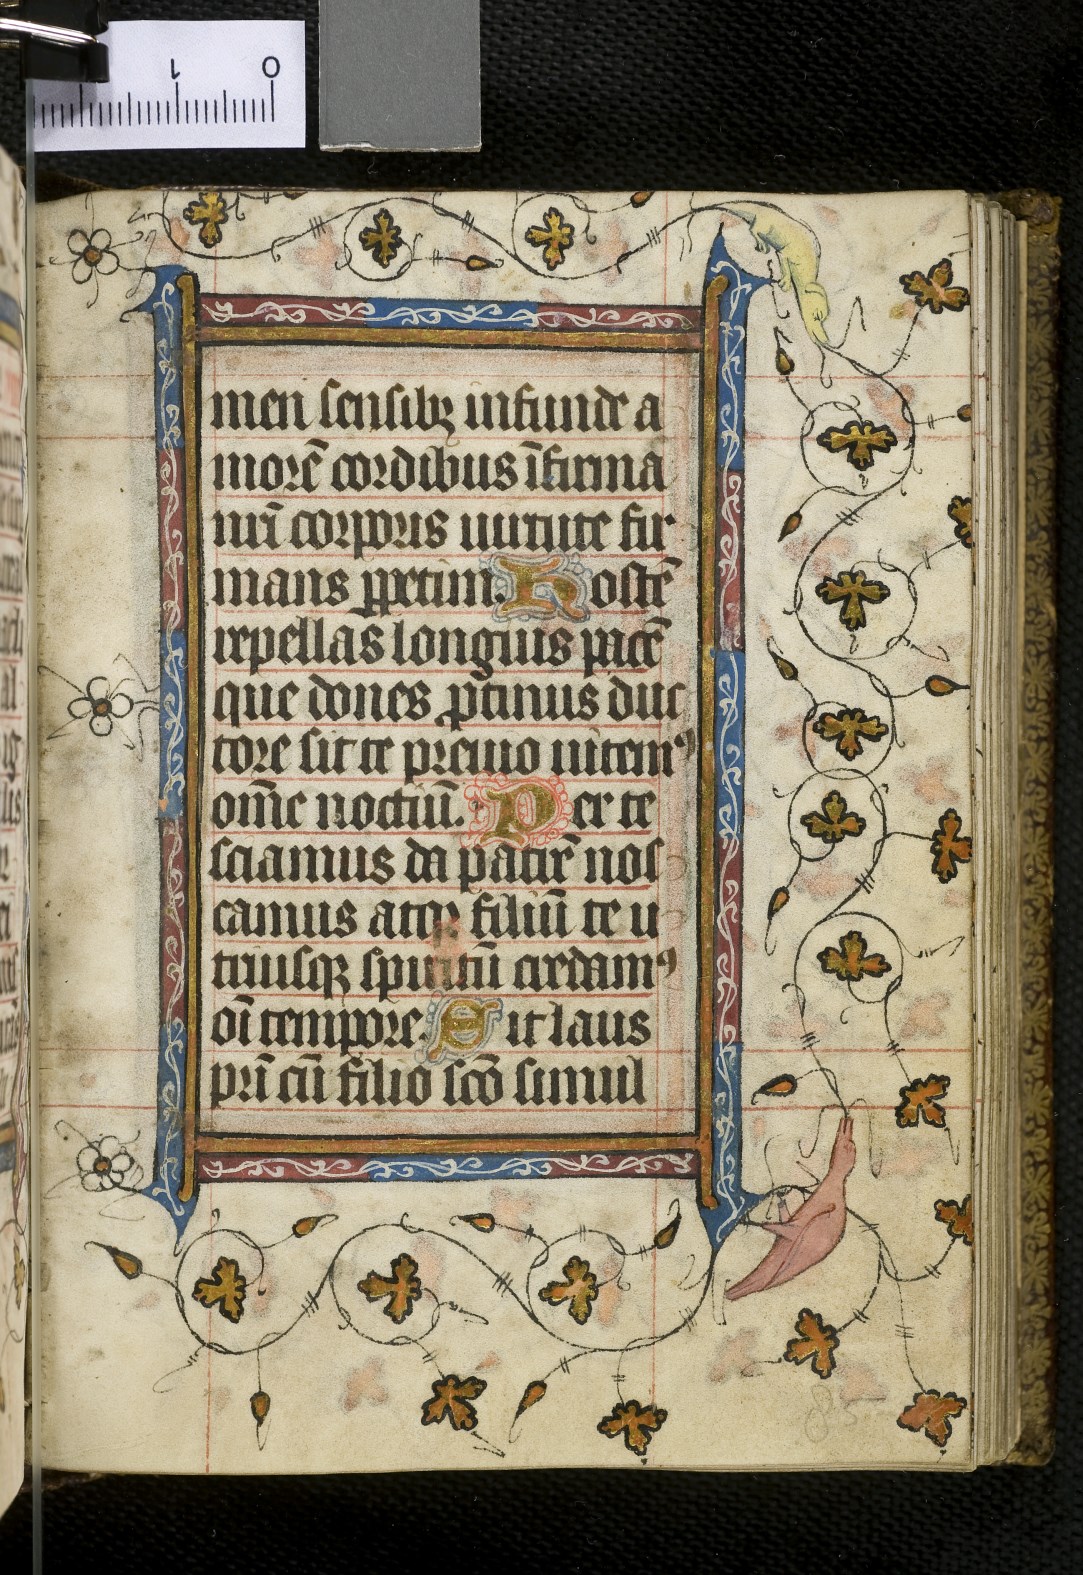 1 0
men sensibꝫ infunde a
morē cordibus īfirma
nr̄i corporis uirtute fir
mans ꝑpetim. Hostē
repellas longius pacē
que dones ꝓtinus duc
tore sic te preuio uitemꝰ
om̄e noctiuū. Per te
sciamus da patrē nos
camus atqꝫ filiū te u
triusqꝫ spiritū credamꝰ
oī tempore. Sit laus
pr̄i cū filio sc̄o simul
85